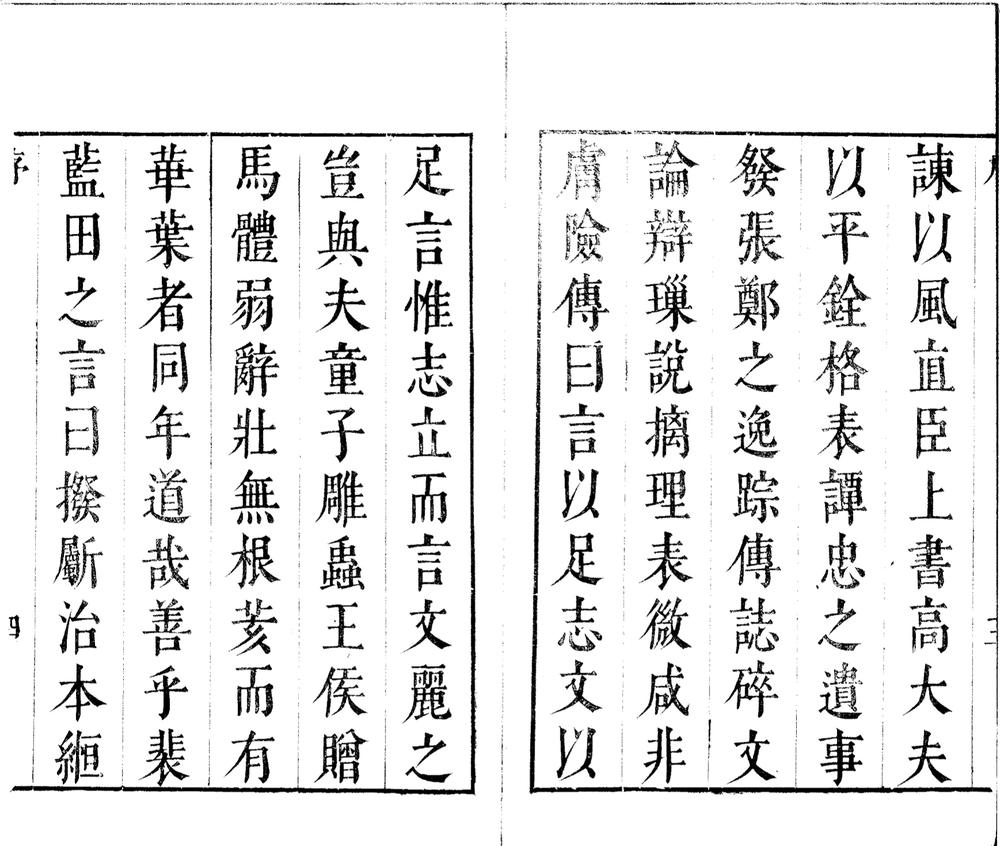 諫以風直臣上書高大夫
以平銓格表譚忠之遺事
發張鄭之逸踪傳誌碎文
論辯璅說摛理表微咸非
膚險傳曰言以足志文以
足言惟志立而言文麗之
豈與夫童子雕蟲王侯贈
馬體弱辭壯無根荄而有
華葉者同年道哉善乎裴
藍田之言曰揆斸治本絙
序
四